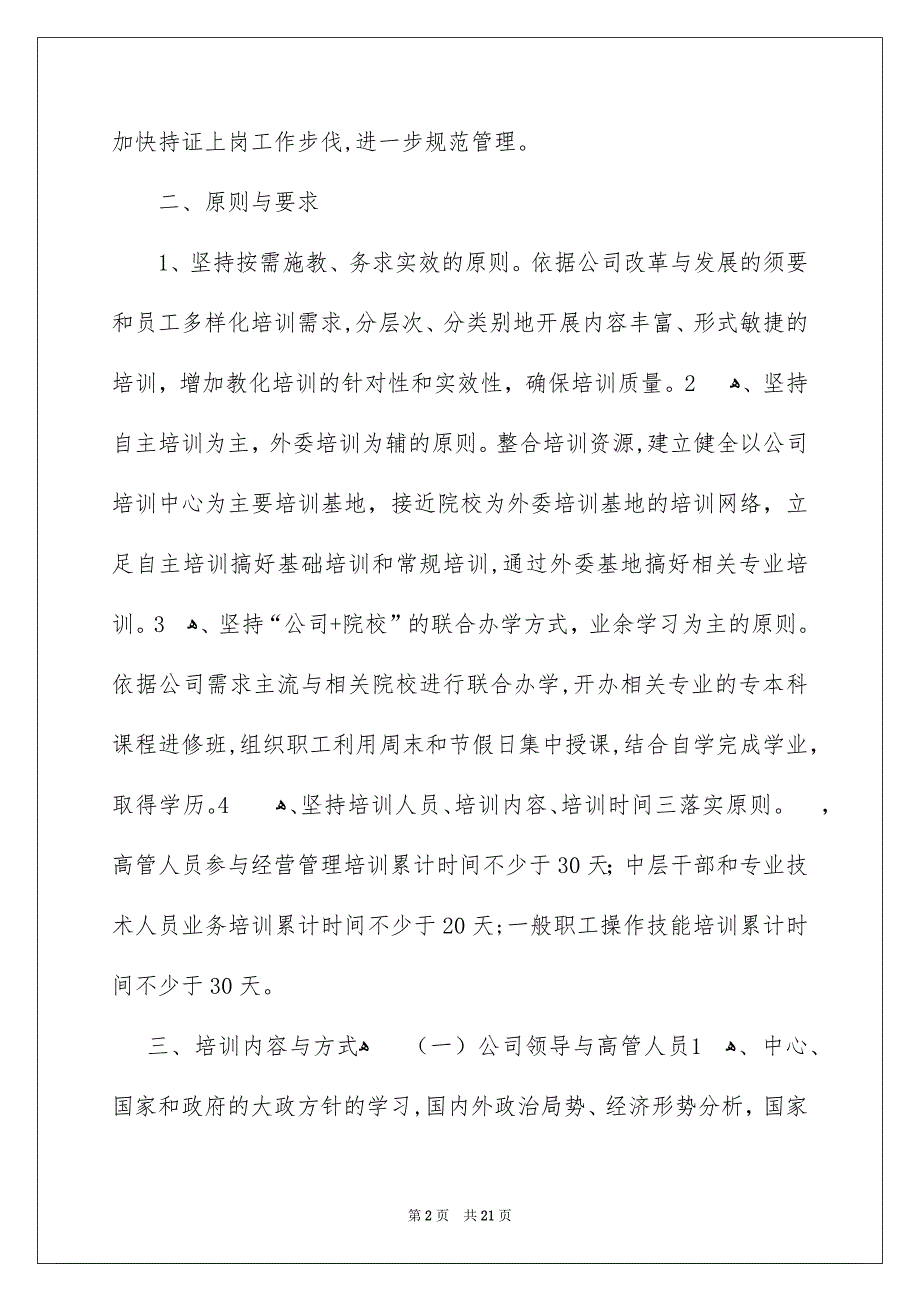 加快持证上岗工作步伐,进一步规范管理。
二、原则与要求
1、坚持按需施教、务求实效的原则。依据公司改革与发展的须要
和员工多样化培训需求,分层次、分类别地开展内容丰富、形式敏捷的
培训，增加教化培训的针对性和实效性，确保培训质量。2 ﻫ、坚持
自主培训为主，外委培训为辅的原则。整合培训资源,建立健全以公司
培训中心为主要培训基地，接近院校为外委培训基地的培训网络，立
足自主培训搞好基础培训和常规培训,通过外委基地搞好相关专业培
训。3 ﻫ、坚持“公司+院校”的联合办学方式，业余学习为主的原则。
依据公司需求主流与相关院校进行联合办学,开办相关专业的专本科
课程进修班,组织职工利用周末和节假日集中授课,结合自学完成学业，
取得学历。4 ﻫ、坚持培训人员、培训内容、培训时间三落实原则。 ，
高管人员参与经营管理培训累计时间不少于30天；中层干部和专业技
术人员业务培训累计时间不少于20天;一般职工操作技能培训累计时
间不少于30天。
三、培训内容与方式ﻫ （一）公司领导与高管人员1 ﻫ、中心、
国家和政府的大政方针的学习,国内外政治局势、经济形势分析，国家
第2页 共21页